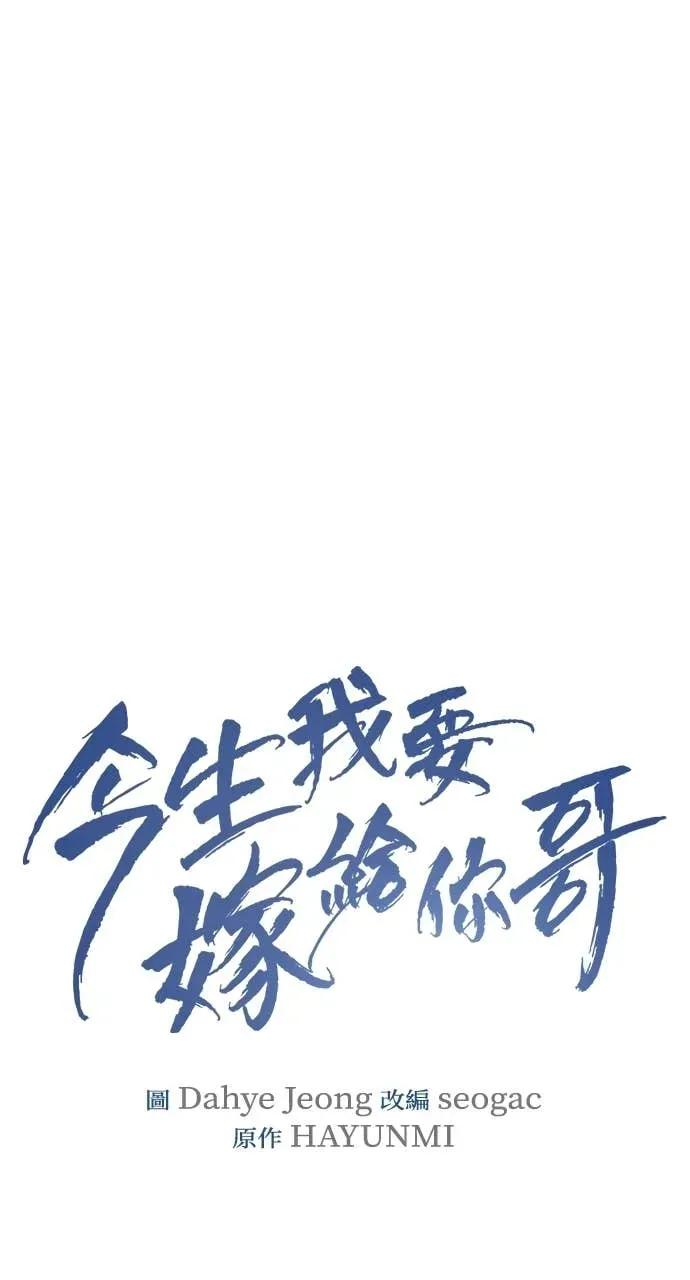 今生我要
嫁給你哥
圖 Dahye Jeong 改編 seogac
原作 HAYUNMI